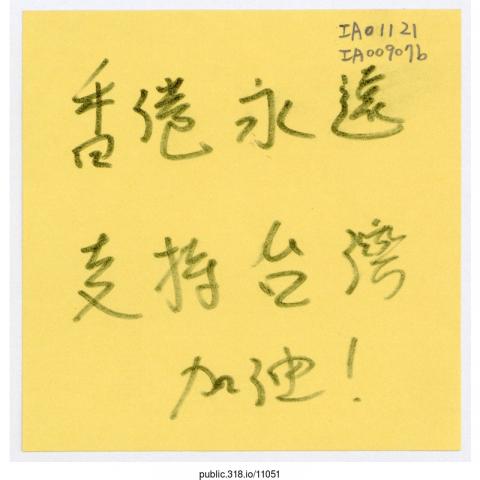 IA01121
IA00907b
香港永遠
支持台灣
加油！
public.318.io/11051